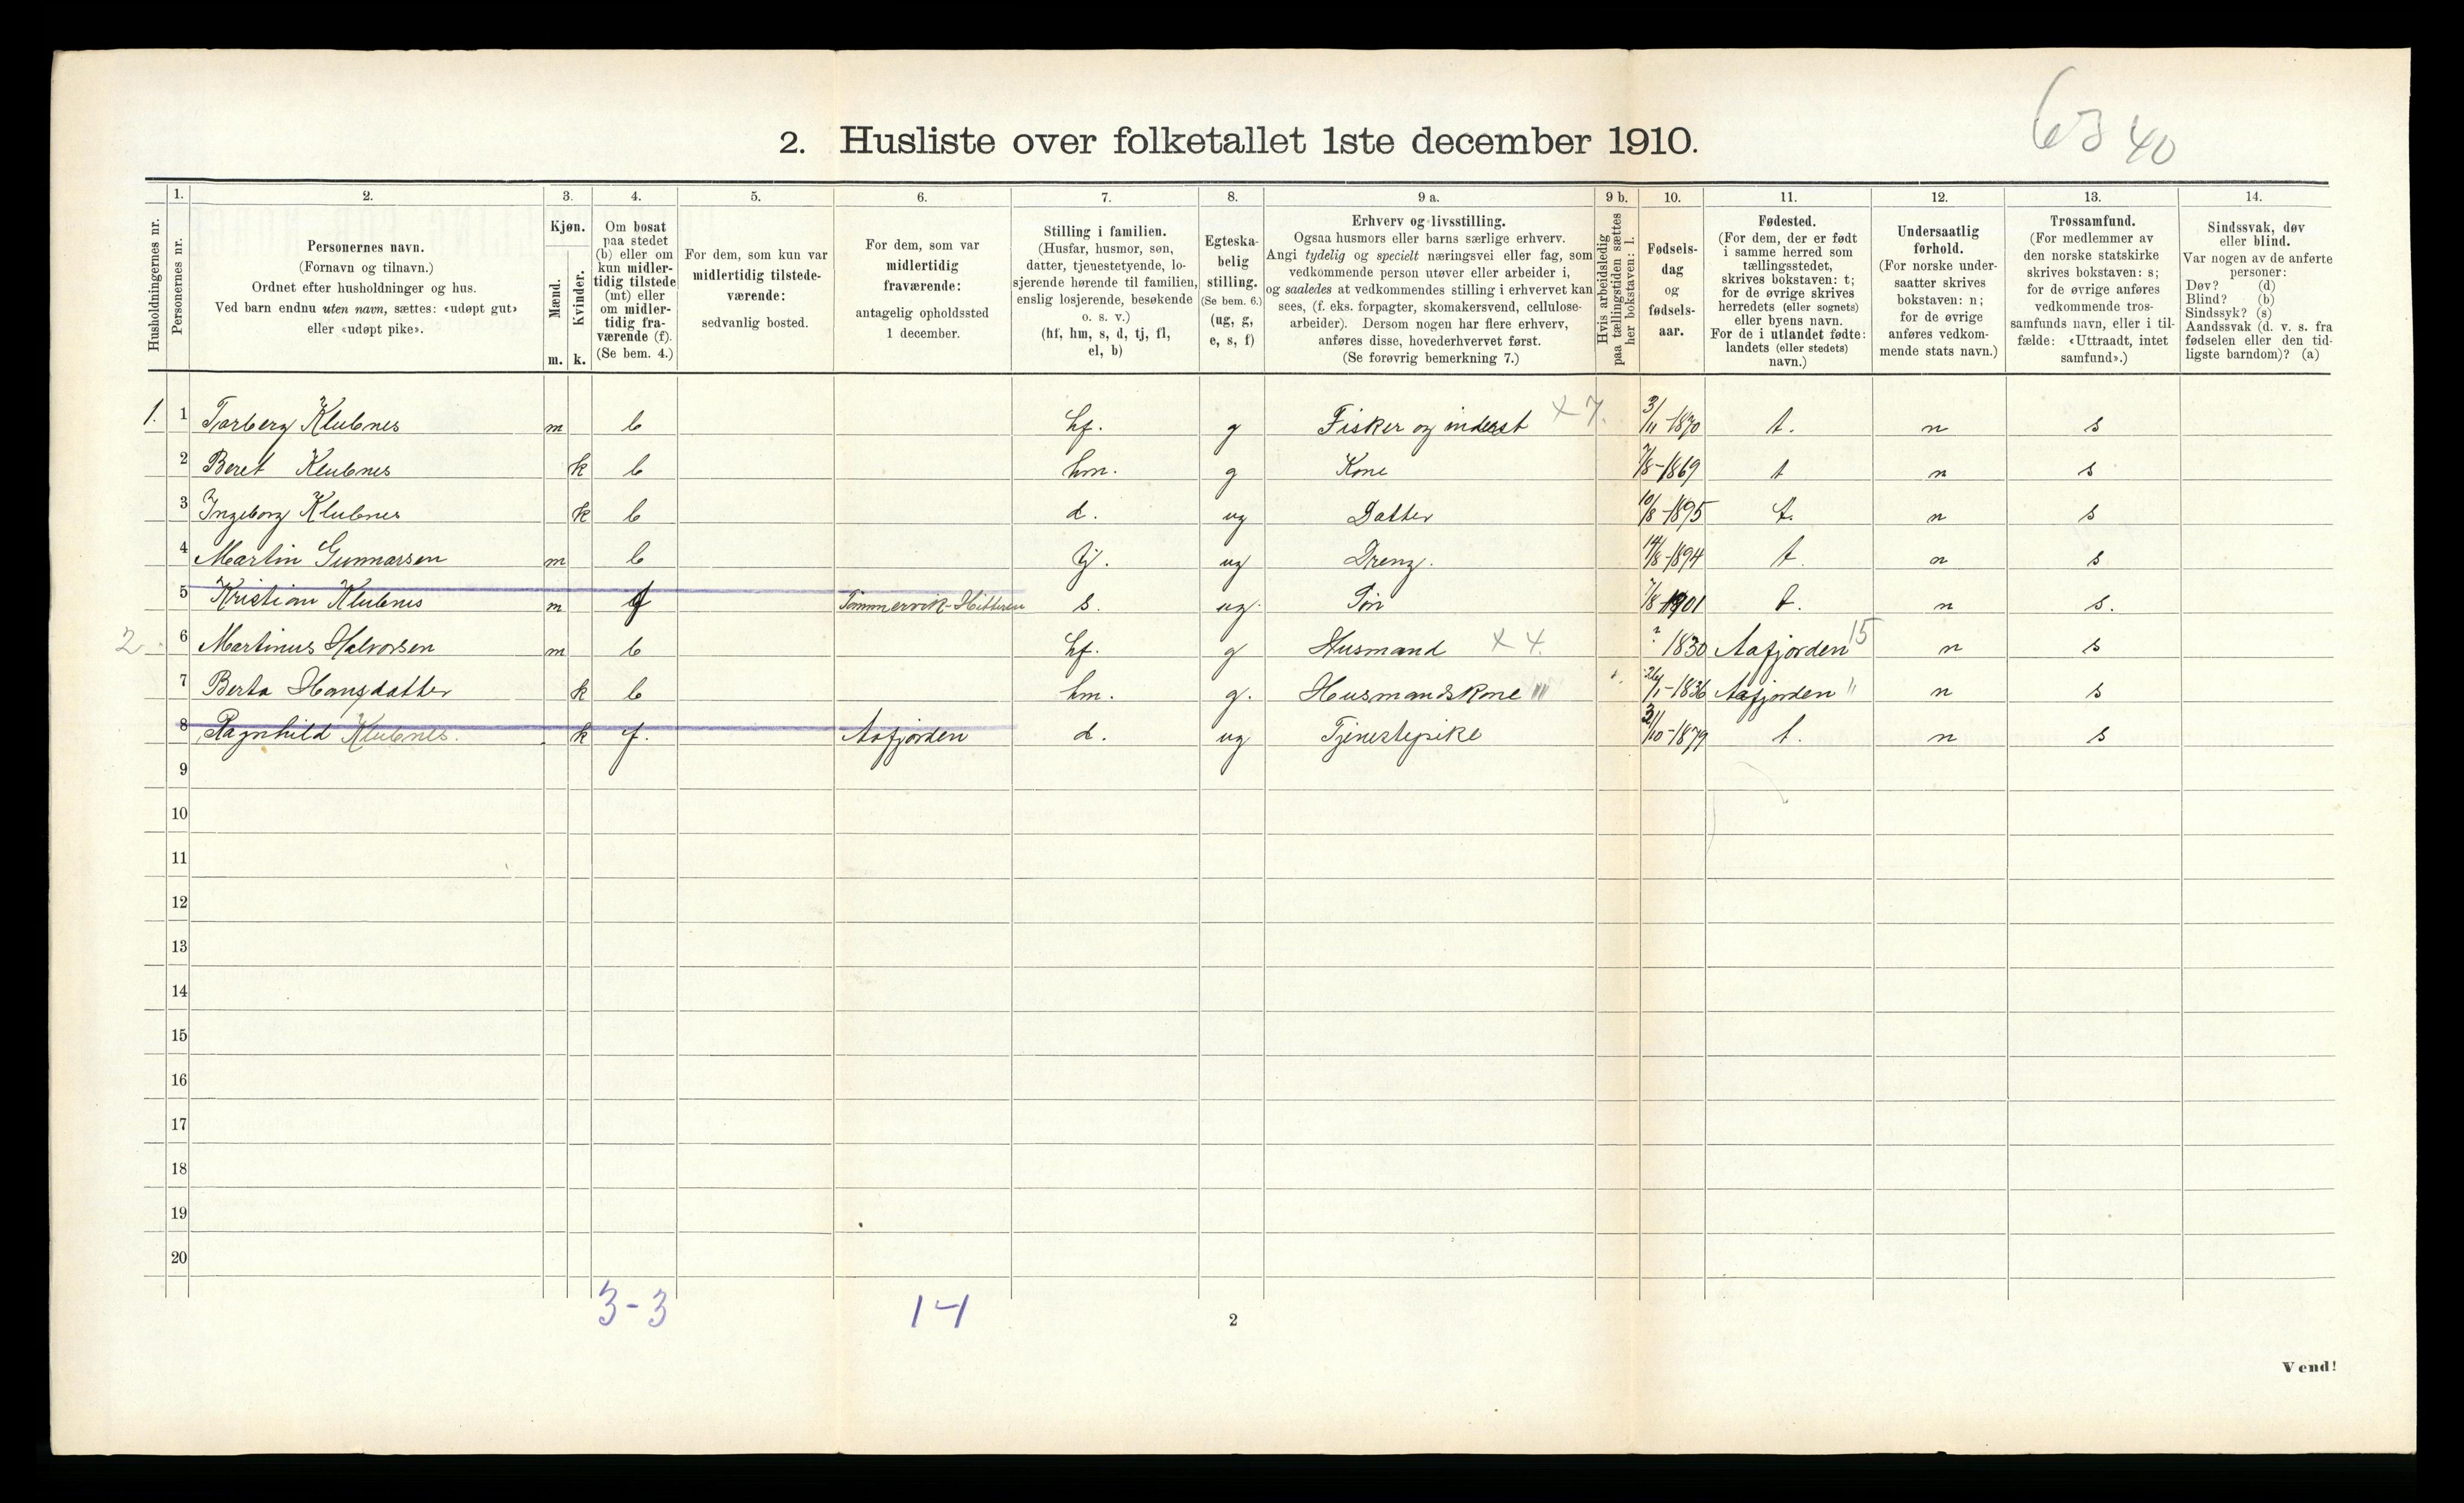 63 40
2. Husliste over folketallet 1ste december 1910.
1. 2. 3. 4. 5. 6. 7. 8. 9 a. 9 b. 10. 11. 12. 13. 14.
Husholdningernes nr.
Personernes nr.
Personernes navn.
(Fornavn og tilnavn.)
Ordnet efter husholdninger og hus.
Ved barn endnu uten navn, sættes: «udøpt gut»
eller «udøpt pike».
Kjøn.
Mænd.
m.
Kvinder.
k.
Om bosat
paa stedet
(b) eller om
kun midler-
tidig tilstede
(mt) eller
om midler-
tidig fra-
værende (f).
(Se bem. 4.)
For dem, som kun var
midlertidig tilstede-
værende:
sedvanlig bosted.
For dem, som var
midlertidig
fraværende:
antagelig opholdssted
1 december.
Stilling i familien.
(Husfar, husmor, søn,
datter, tjenestetyende, lo-
sjerende hørende til familien,
enslig losjerende, besøkende
o. s. v.)
(hf, hm, s, d, tj, fl,
el, b)
Egteska-
belig
stilling.
(Se bem. 6.)
(ug, g,
e, s, f)
Erhverv og livsstilling.
Ogsaa husmors eller barns særlige erhverv.
Angi tydelig og specielt næringsvei eller fag, som
vedkommende person utøver eller arbeider i,
og saaledes at vedkommendes stilling i erhvervet kan
sees, (f. eks. forpagter, skomakersvend, cellulose-
arbeider). Dersom nogen har flere erhverv,
anføres disse, hovederhvervet først.
(Se forøvrig bemerkning 7.)
Hvis arbeidsledig
paa tællingstiden sættes
her bokstaven: l.
Fødsels-
dag
og
fødsels-
aar.
Fødested.
(For dem, der er født
i samme herred som
tællingsstedet,
skrives bokstaven: t;
for de øvrige skrives
herredets (eller sognets)
eller byens navn.
For de i utlandet fødte:
landets (eller stedets)
navn.)
Undersaatlig
forhold.
(For norske under-
saatter skrives
bokstaven: n;
for de øvrige
anføres vedkom-
mende stats navn.)
Trossamfund.
(For medlemmer av
den norske statskirke
skrives bokstaven: s;
for de øvrige anføres
vedkommende tros-
samfunds navn, eller i til-
fælde: «Uttraadt, intet
samfund».)
Sindssvak, døv
eller blind.
Var nogen av de anførte
personer:
Døv? (d)
Blind? (b)
Sindssyk? (s)
Aandssvak (d. v. s. fra
fødselen eller den tid-
ligste barndom)? (a)
1. 1 Torberg Klubnes m b hf. g Fisker og inderst x 7. 3/11-1870 t. n s
2 Beret Klubnes k b hm. g Kone 7/8-1869 t n s
3 Ingeborg Klubnes k b d. ug Datter 10/8-1895 t. n s
4 Martin Gunnarsen m b tj. ug Dreng. 14/8-1894 t. n s
5 Kristian Klubnes m f Tømmervik-Hitteren s. ug. Søn 7/8 1901 t. n s.
2. 6 Martinus Halvorsen m b hf. g Husmand x 4. ? 1830 Aafjorden 15 n s
7 Berta Hansdatter k b hm. g. Husmandskone 26/1-1836 Aafjorden " n s
8 Ragnhild Klubnes. k f. Aafjorden d. ug Tjenestepike 3/10-1879 t. n s
9
10
11
12
13
14
15
16
17
18
19
20
3-3 14
2
Vend!